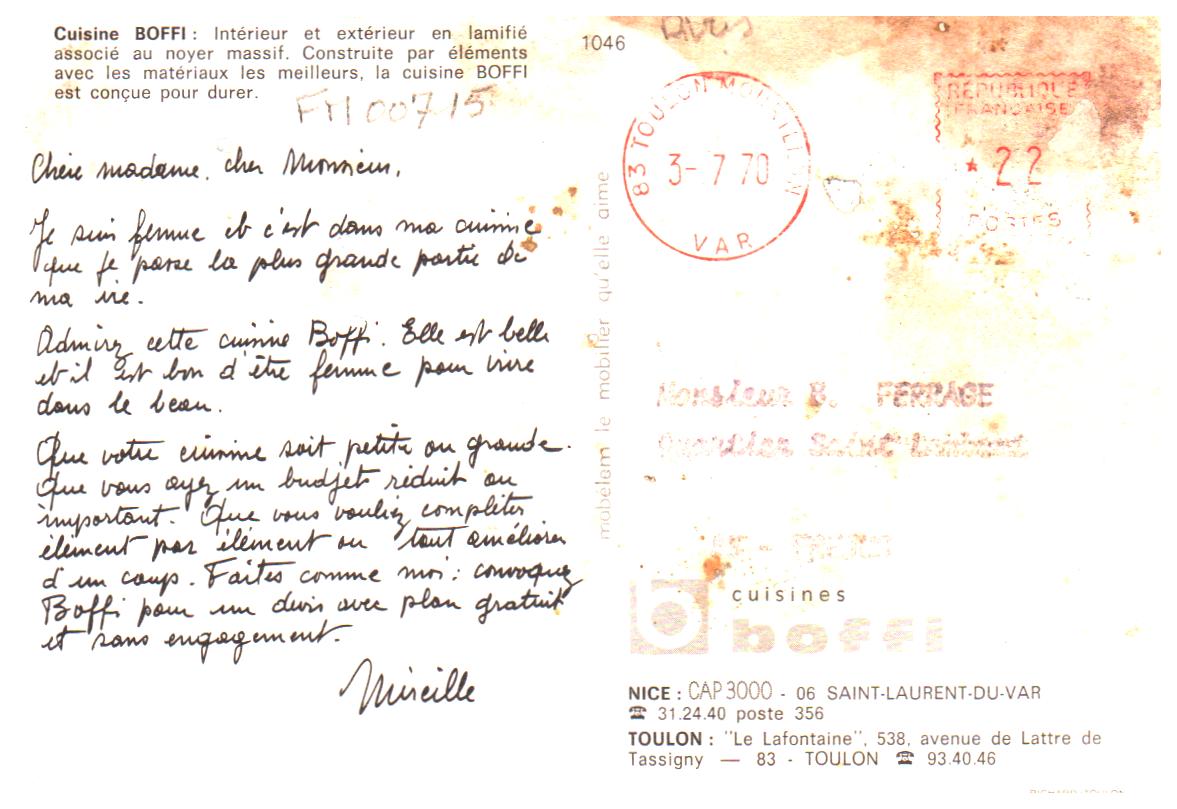 Cuisine BOFFI : Intérieur et extérieur en lamifié
associé au noyer massif. Construite par éléments
avec les matériaux les meilleurs, la cuisine BOFFI
est conçue pour durer.
1046
Chère madame, cher Monsieur,
Je suis femme et c'est dans ma cuisine
que je passe la plus grande partie de
ma vie.
Admirez cette cuisine Boffi. Elle est belle
et il est bon d'être femme pour vivre
dans le beau.
Que votre cuisine soit petite ou grande.
Que vous ayez un budget réduit ou
important. Que vous vouliez compléter
élément par élément ou tout améliorer
d'un coup. Faites comme moi : convoquez
Boffi pour un devis avec plan gratuit
et sans engagement.
Mireille
mobelom le mobilier qu'elle aime
83 TOULON
3-7 70
VAR
REPUBLIQUE
FRANÇAISE
* 22
POSTES
Monsieur B. FERRAGE
Quartier Saint
cuisines
boffi
NICE : CAP 3000 - 06 SAINT-LAURENT-DU-VAR
☎ 31.24.40 poste 356
TOULON : "Le Lafontaine", 538, avenue de Lattre de
Tassigny — 83 - TOULON ☎ 93.40.46